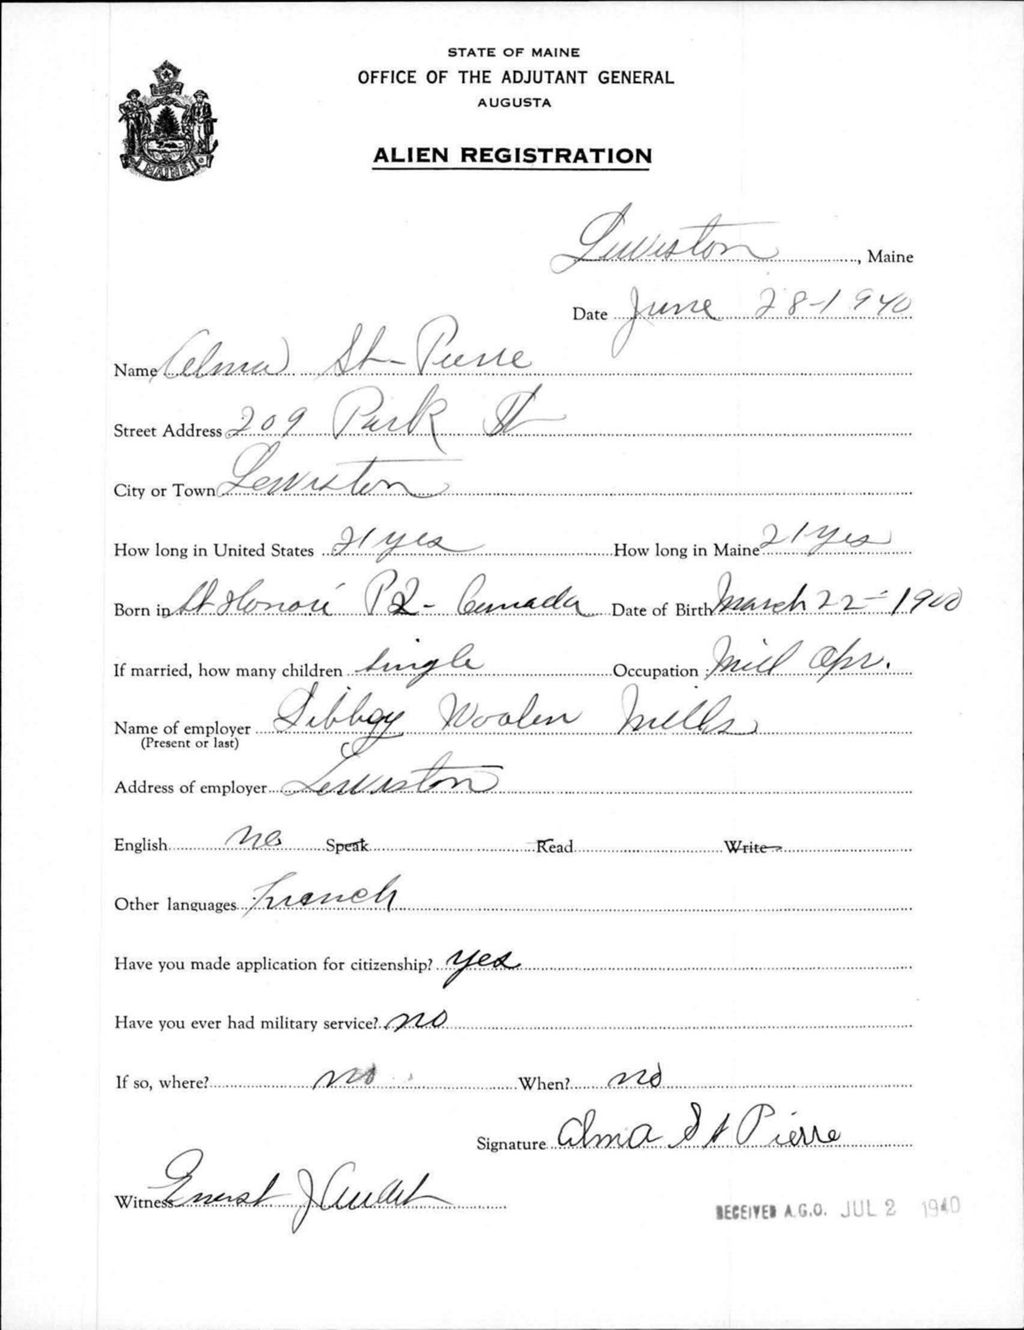 STATE OF MAINE
OFFICE OF THE ADJUTANT GENERAL
AUGUSTA
MAINE
ALIEN REGISTRATION
Lewiston, Maine
Date June 28-1940
Name Alma St-Pierre
Street Address 209 Park St
City or Town Lewiston
How long in United States 21 yrs How long in Maine 21 yrs
Born in St Honoré P2- Canada Date of Birth March 22-1900
If married, how many children single Occupation Mill Opr.
Name of employer Libbey Woolen Mills
(Present or last)
Address of employer Lewiston
English no Speak Read Write
Other languages French
Have you made application for citizenship? yes
Have you ever had military service? no
If so, where? no When? no
Signature Alma St Pierre
Witness Ernest J Audet
RECEIVED A.G.O. JUL 2 1940